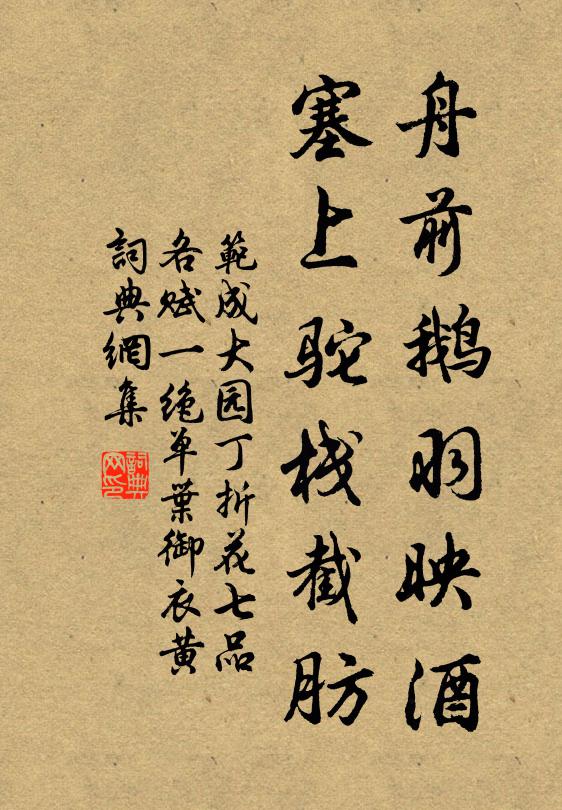 舟前鹅羽映酒
塞上驼栈截肪
範成大园丁折花七品
各赋一绝单葉御衣黄
詞典網集
詞典網印